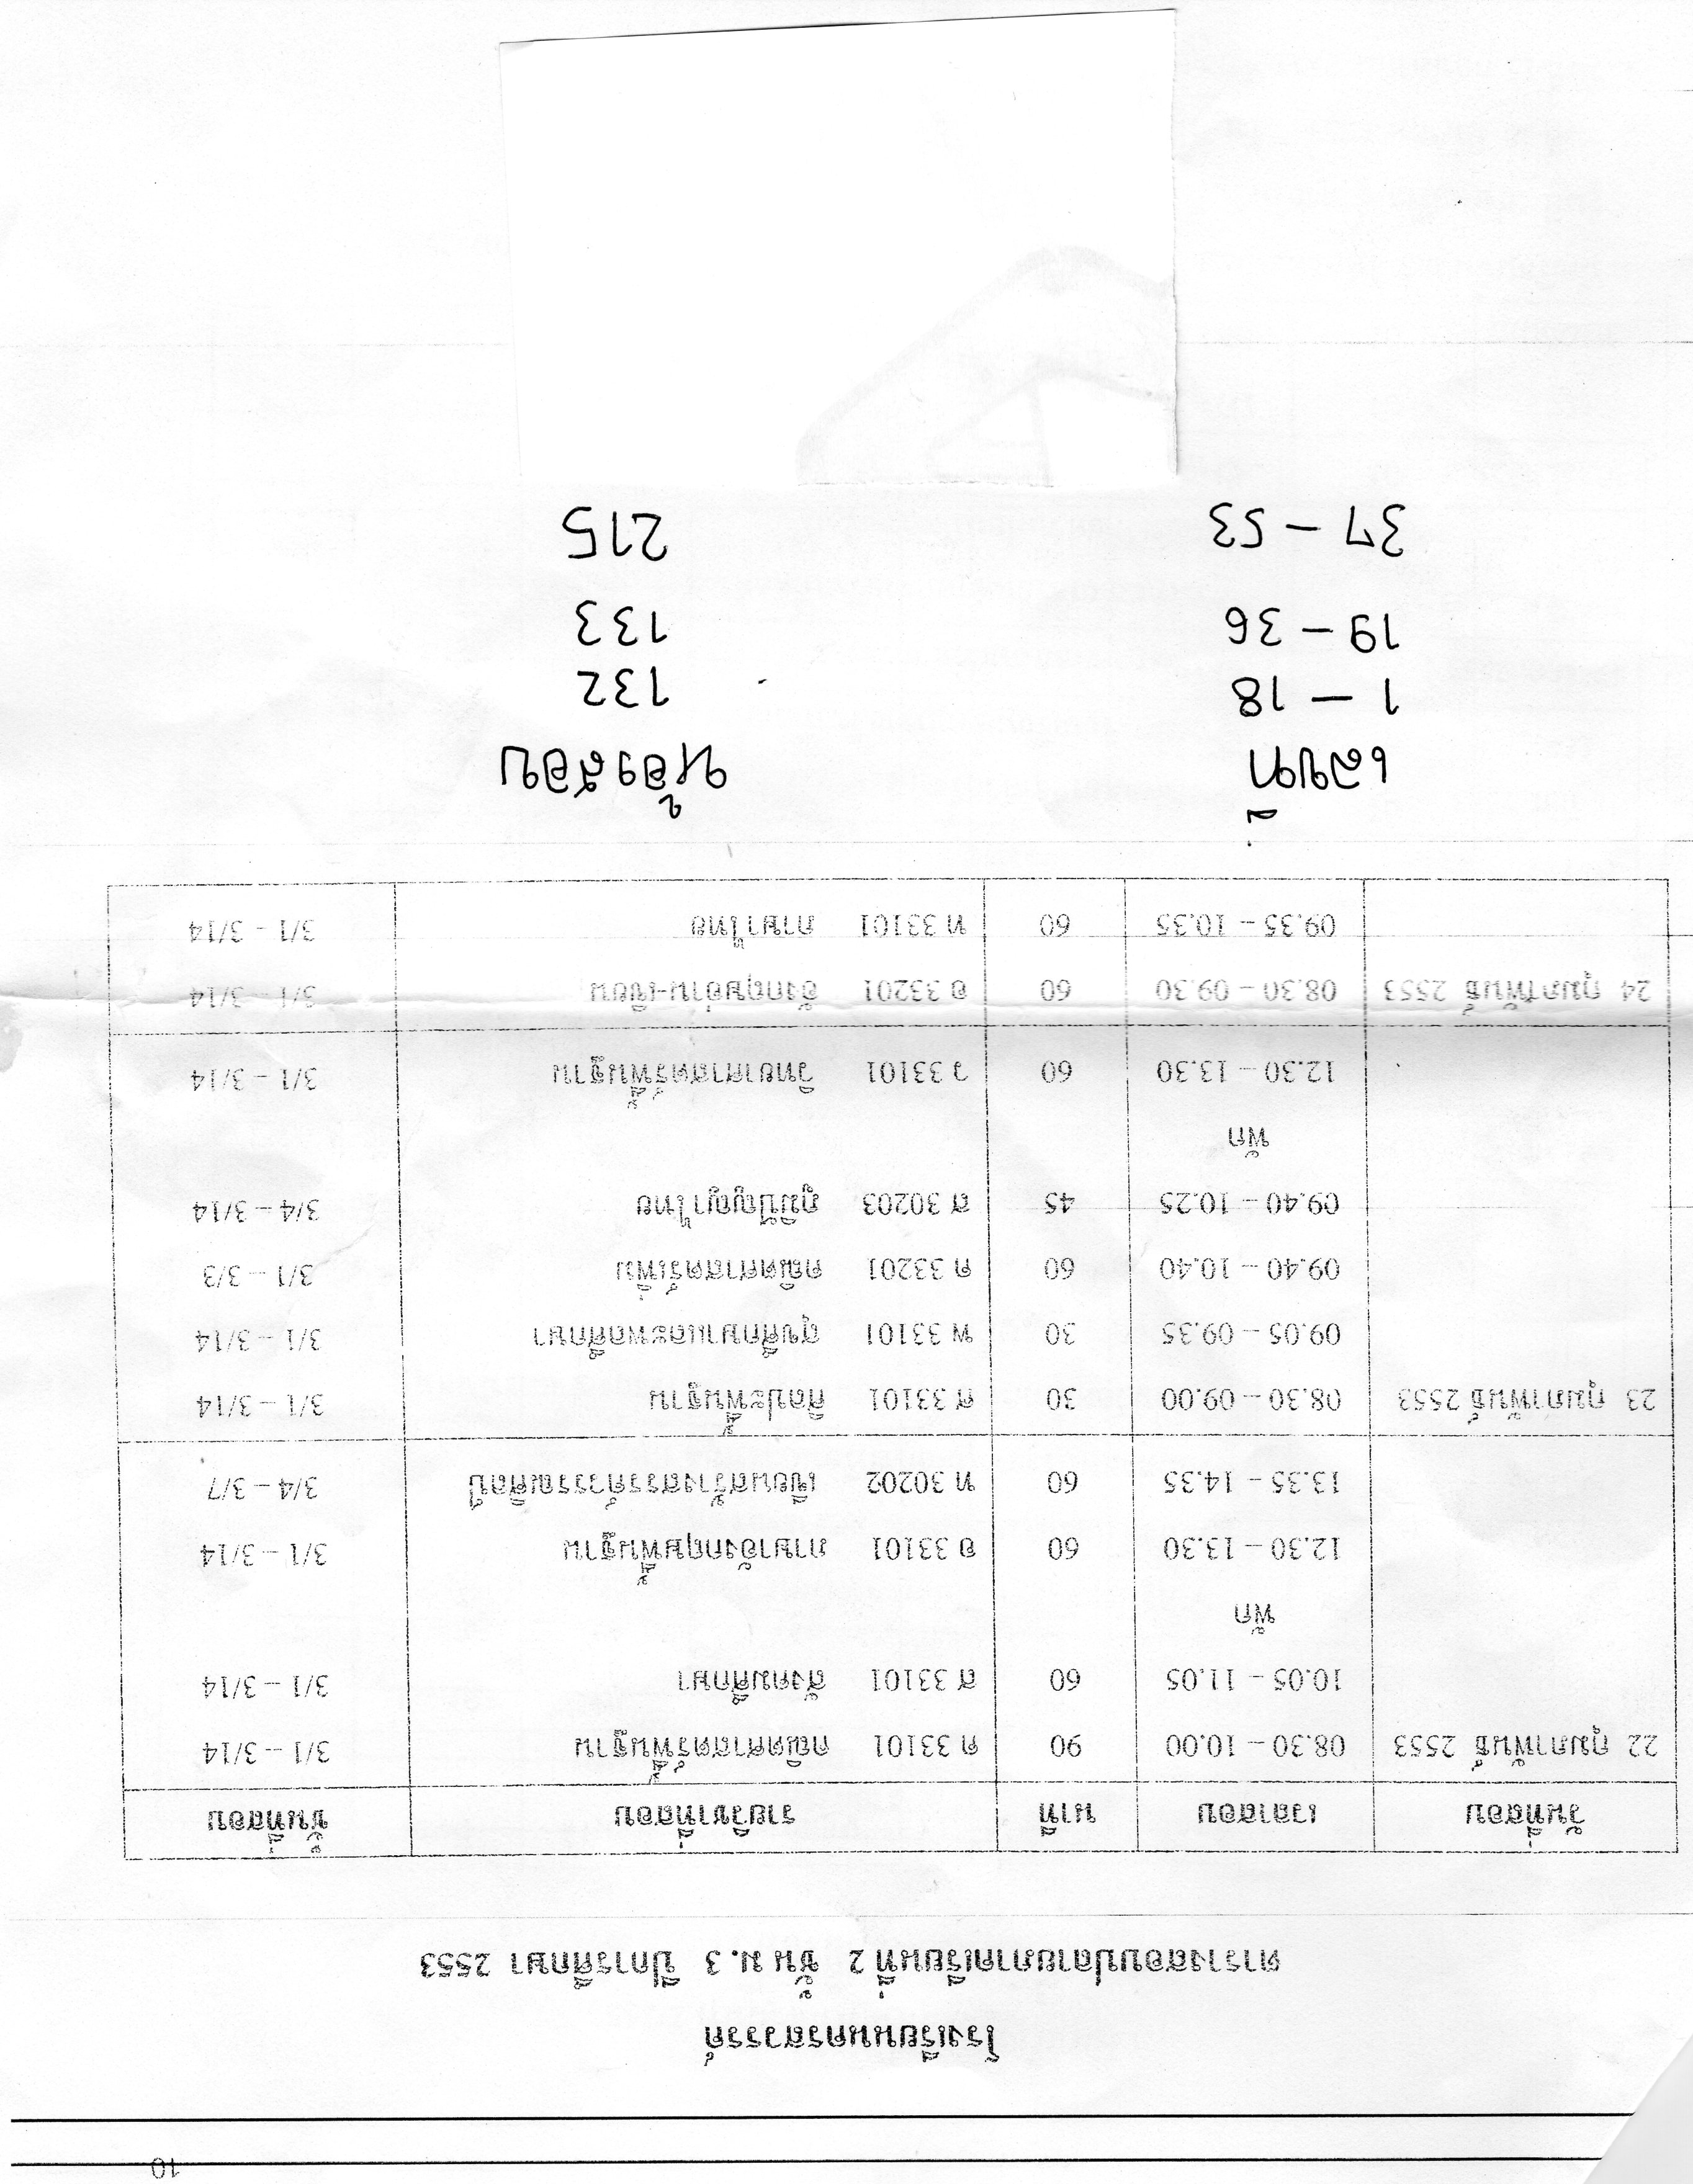 10
โรงเรียนนครสวรรค์
ตารางสอบปลายภาคเรียนที่ 2 ชั้น ม.3 ปีการศึกษา 2553
วันที่สอบ เวลาสอบ นาที รายวิชาที่สอบ ชั้นที่สอบ
22 กุมภาพันธ์ 2553 08.30 – 10.00 90 ค 33101 คณิตศาสตร์พื้นฐาน 3/1 – 3/14
10.05 – 11.05 60 ส 33101 สังคมศึกษา 3/1 – 3/14
พัก
12.30 – 13.30 60 อ 33101 ภาษาอังกฤษพื้นฐาน 3/1 – 3/14
13.35 – 14.35 60 ท 30202 เขียนสร้างสรรค์วรรณศิลป์ 3/4 – 3/7
23 กุมภาพันธ์ 2553 08.30 – 09.00 30 ศ 33101 ศิลปะพื้นฐาน 3/1 – 3/14
09.05 – 09.35 30 พ 33101 สุขศึกษาและพลศึกษา 3/1 – 3/14
09.40 – 10.40 60 ค 33201 คณิตศาสตร์เพิ่ม 3/1 – 3/3
09.40 – 10.25 45 ส 30203 ภูมิปัญญาไทย 3/4 – 3/14
พัก
12.30 – 13.30 60 ว 33101 วิทยาศาสตร์พื้นฐาน 3/1 – 3/14
24 กุมภาพันธ์ 2553 08.30 – 09.30 60 อ 33201 อังกฤษอ่าน-เขียน 3/1 – 3/14
09.35 – 10.35 60 ท 33101 ภาษาไทย 3/1 - 3/14
เลขที่ ห้องสอบ
1 – 18 132
19 – 36 133
37 – 53 215